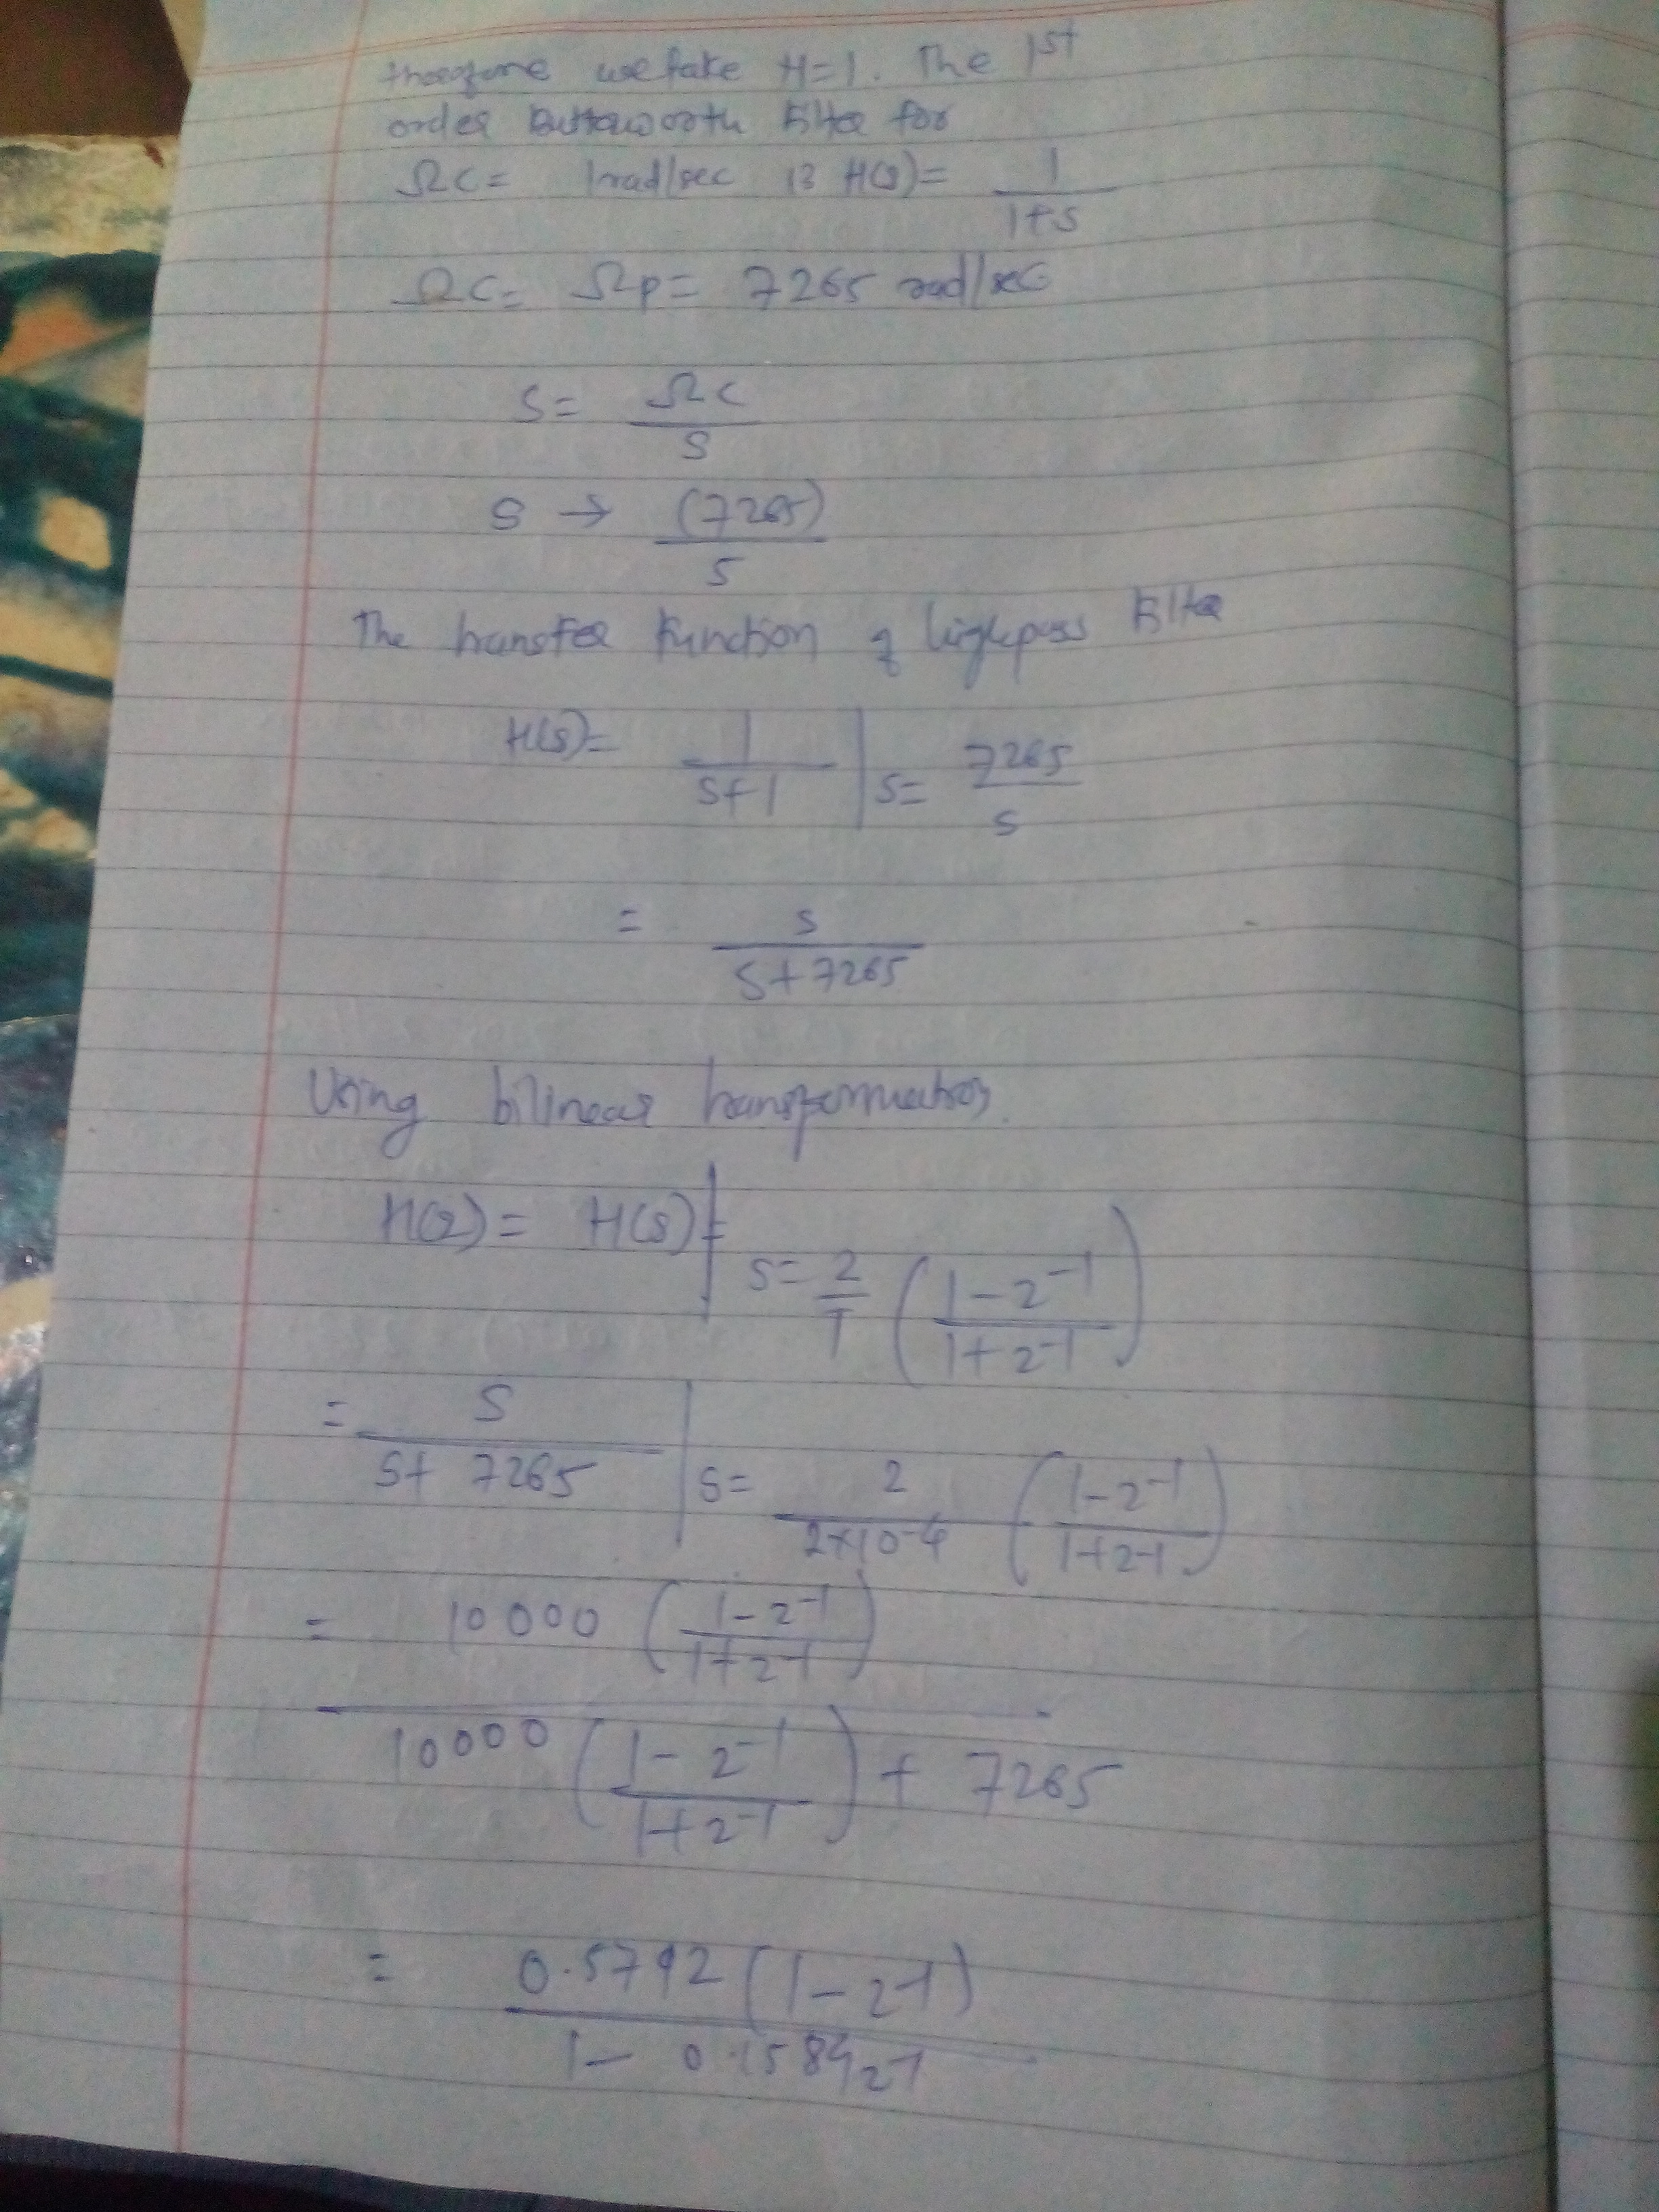 therefore we take H=1. The 1st
order Butterworth Filter for
Ωc= 1rad/sec is H(s)= 1/(1+s)
Ωc= Ωp= 7265 rad/sec
s= Ωc/s
s → (7265)/s
The transfer Function of highpass Filter
H(s)= 1/(s+1) | s= 7265/s
= s/(s+7265)
Using bilinear transformation.
H(z)= H(s)| s= 2/T ((1-z-1)/(1+z-1))
= s/(s+ 7265) | s= 2/(2×10-4) ((1-z-1)/(1+z-1))
= 10000 ((1-z-1)/(1+z-1))
10000 ((1-z-1)/(1+z-1)) + 7265
= 0.5792 (1-z-1)
1- 0.1584z-1